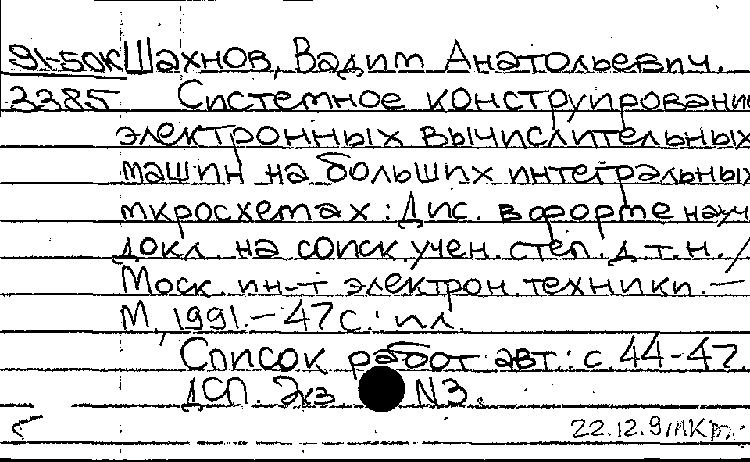 91-50К Шахнов, Вадим Анатольевич.
3385 Системное конструировани
электронных вычислительных
машин на больших интегральных
мкросхемах : Дис. в форме науч
докл. на соиск. учен. степ. д. т. н. /
Моск. ин-т электрон. техники. —
М., 1991. — 47 с. : ил.
Список работ авт.: с. 44-47.
ДСП. Экз N3.
22.12.91